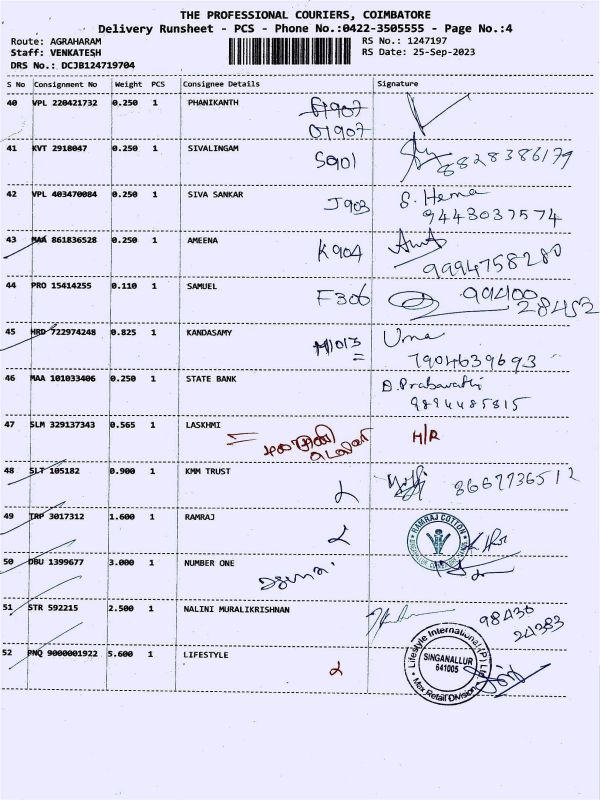 THE PROFESSIONAL COURIERS, COIMBATORE
Delivery Runsheet - PCS - Phone No.:0422-3505555 - Page No.:4
Route: AGRAHARAM
Staff: VENKATESH
DRS No.: DCJB124719704
RS No.: 1247197
RS Date: 25-Sep-2023
S No Consignment No Weight PCS Consignee Details Signature
40 VPL 220421732 0.250 1 PHANIKANTH
O1907
41 KVT 2918047 0.250 1 SIVALINGAM S901 8828386179
42 VPL 403470084 0.250 1 SIVA SANKAR J903 S. Hema
9443037574
43 MAA 861836528 0.250 1 AMEENA K904
9994758280
44 PRO 15414255 0.110 1 SAMUEL F306 99400
28452
45 HRD 722974248 0.825 1 KANDASAMY M1013 Uma
7904639693
46 MAA 101033406 0.250 1 STATE BANK D. Prabavathi
9894485815
47 SLM 329137343 0.565 1 LASKHMI H/R
48 SLT 105182 0.900 1 KMM TRUST 8667736512
49 TRP 3017312 1.600 1 RAMRAJ
RAMRAJ COTTON
50 DBU 1399677 3.000 1 NUMBER ONE
51 STR 592215 2.500 1 NALINI MURALIKRISHNAN 98430
24383
52 PNQ 9000001922 5.600 1 LIFESTYLE
Lifestyle International (P) Ltd
SINGANALLUR
641005
Max Retail Division